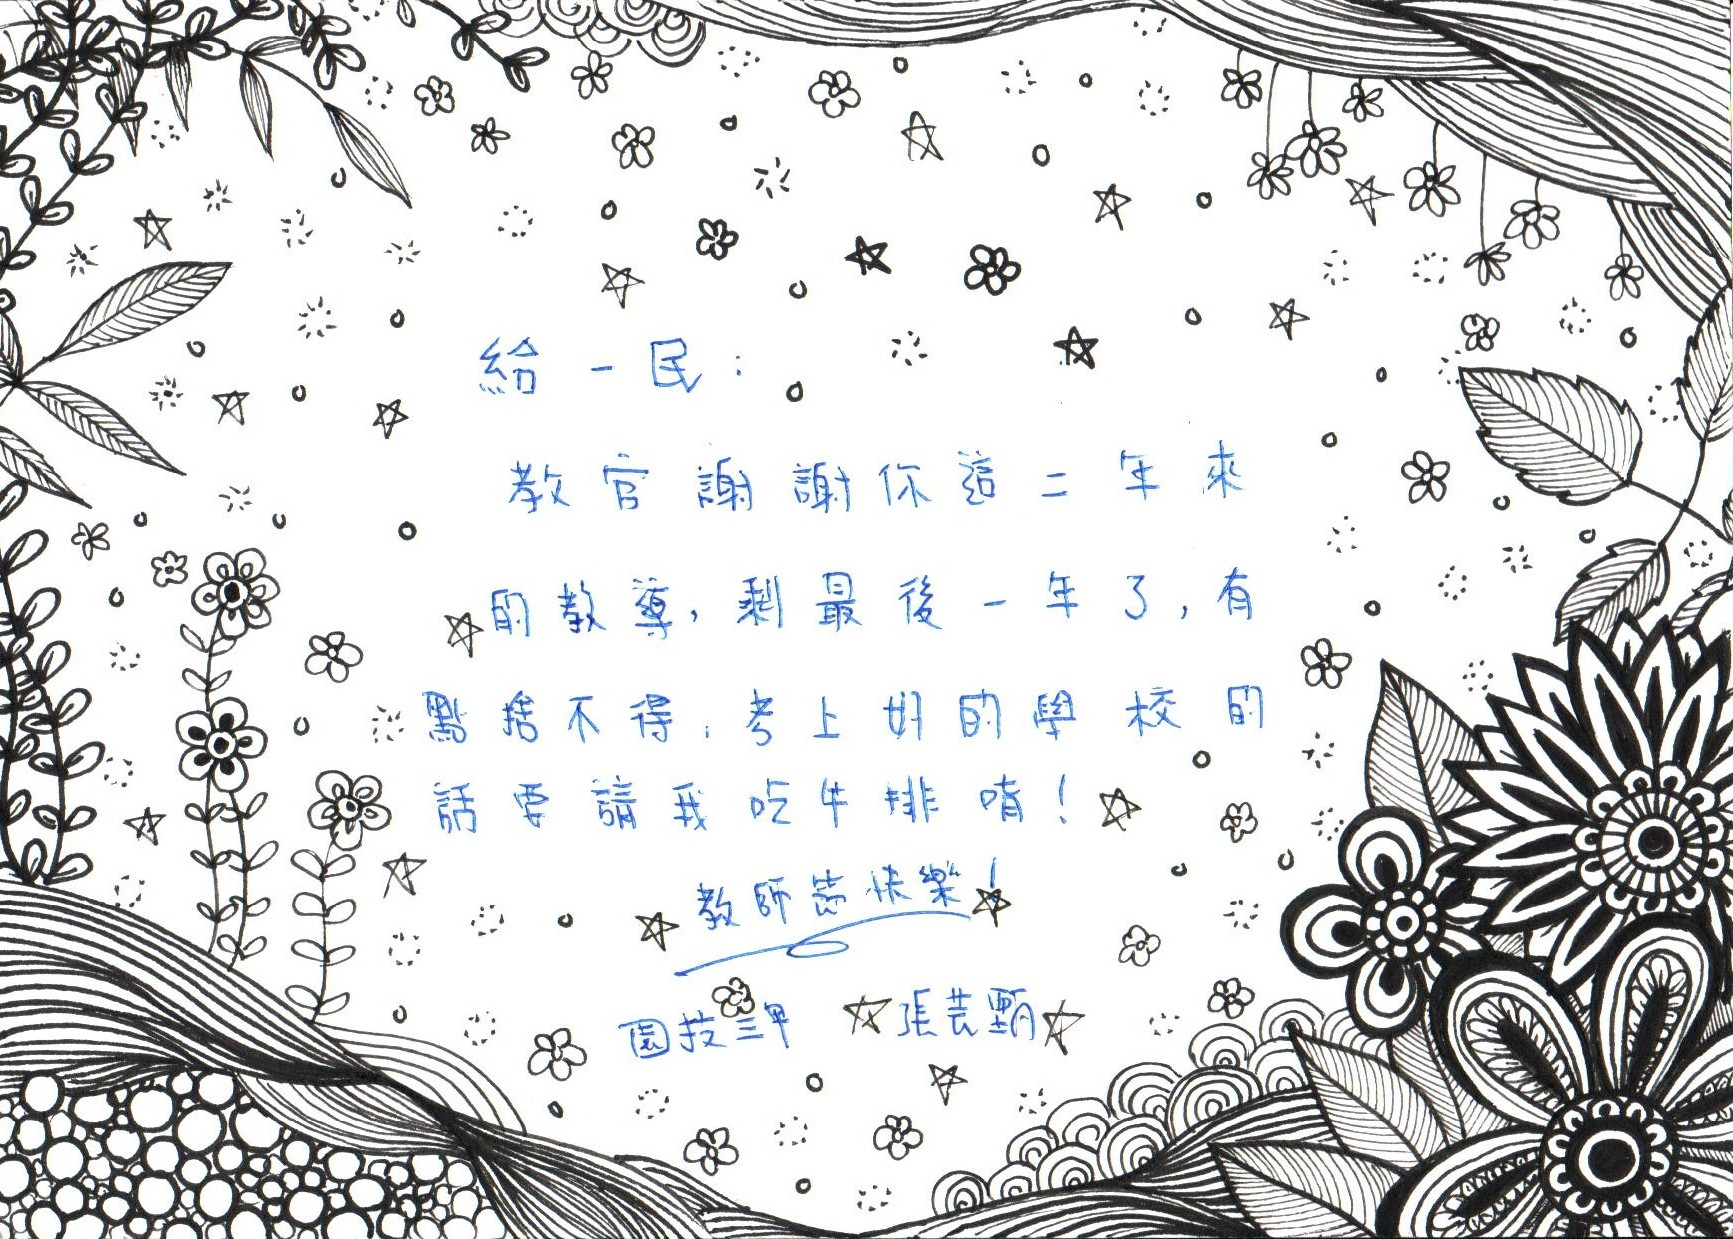 給一民：
教官謝謝你這二年來
的教導，剩最後一年了，有
點捨不得，考上好的學校的
話要請我吃牛排唷！
教師節快樂！
園技三甲 張芸甄